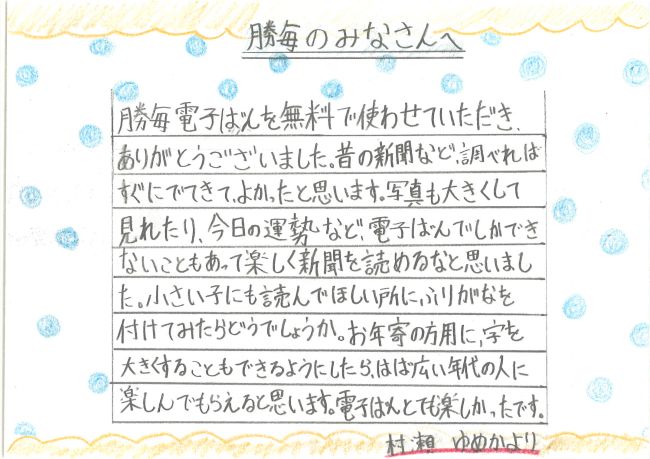 勝毎のみなさんへ
勝毎電子ばんを無料で使わせていただき、
ありがとうございました。昔の新聞など、調べれば
すぐにでてきて、よかったと思います。写真も大きくして
見れたり、今日の運勢など、電子ばんでしかでき
ないこともあって楽しく新聞を読めるなと思いまし
た。小さい子にも読んでほしい所に、ふりがなを
付けてみたらどうでしょうか。お年寄の方用に、字を
大きくすることもできるようにしたら、はば広い年代の人に
楽しんでもらえると思います。電子ばんとても楽しかったです。
村瀬 ゆめかより